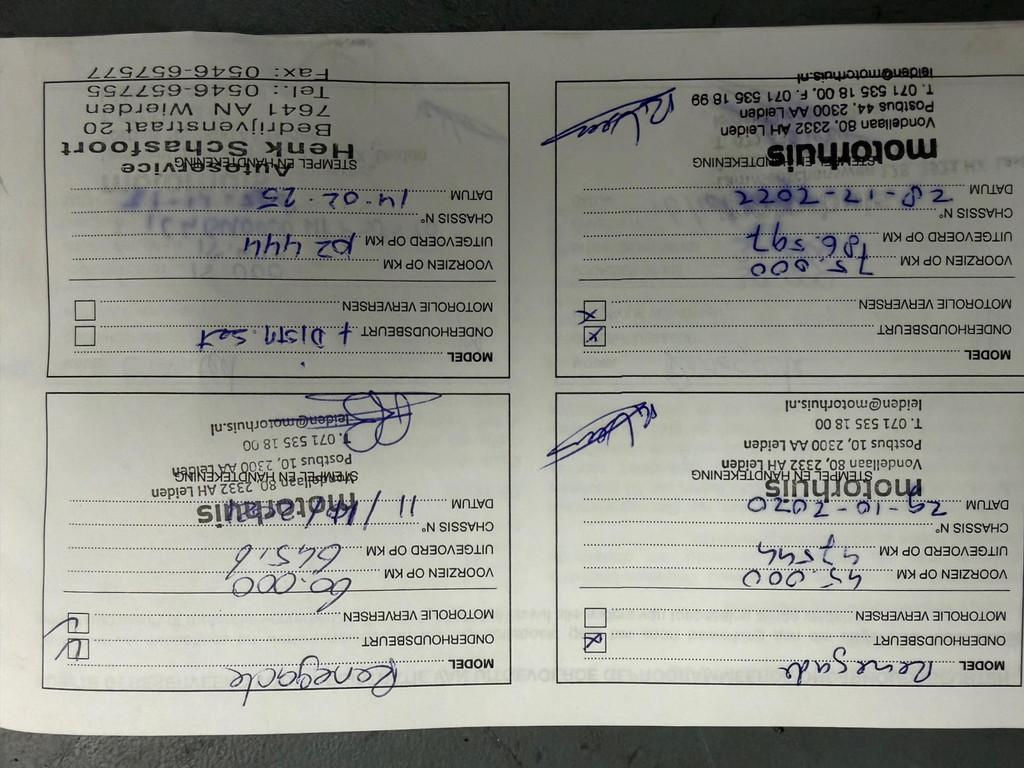 MODEL Renegade
ONDERHOUDSBEURT x
MOTOROLIE VERVERSEN
VOORZIEN OP KM 45.000
UITGEVOERD OP KM 47544
CHASSIS N°
DATUM 29-10-2020
STEMPEL EN HANDTEKENING
motorhuis
Vondellaan 80, 2332 AH Leiden
Postbus 10, 2300 AA Leiden
T. 071 535 18 00
leiden@motorhuis.nl
MODEL Renegade
ONDERHOUDSBEURT
MOTOROLIE VERVERSEN
VOORZIEN OP KM 60.000
UITGEVOERD OP KM
CHASSIS N°
DATUM 11/
STEMPEL EN HANDTEKENING
motorhuis
Vondellaan 80, 2332 AH Leiden
Postbus 10, 2300 AA Leiden
T. 071 535 18 00
leiden@motorhuis.nl
MODEL
ONDERHOUDSBEURT x
MOTOROLIE VERVERSEN x
VOORZIEN OP KM 75.000
UITGEVOERD OP KM 86.597
CHASSIS N°
DATUM 28-12-2022
STEMPEL EN HANDTEKENING
motorhuis
Vondellaan 80, 2332 AH Leiden
Postbus 44, 2300 AA Leiden
T. 071 535 18 00, F. 071 535 18 99
leiden@motorhuis.nl
MODEL
ONDERHOUDSBEURT + DISTR. Set
MOTOROLIE VERVERSEN
VOORZIEN OP KM
UITGEVOERD OP KM 102444
CHASSIS N°
DATUM 14-02-25
STEMPEL EN HANDTEKENING
Autoservice
Henk Schasfoort
Bedrijvenstraat 20
7641 AN Wierden
Tel.: 0546-657755
Fax: 0546-657577